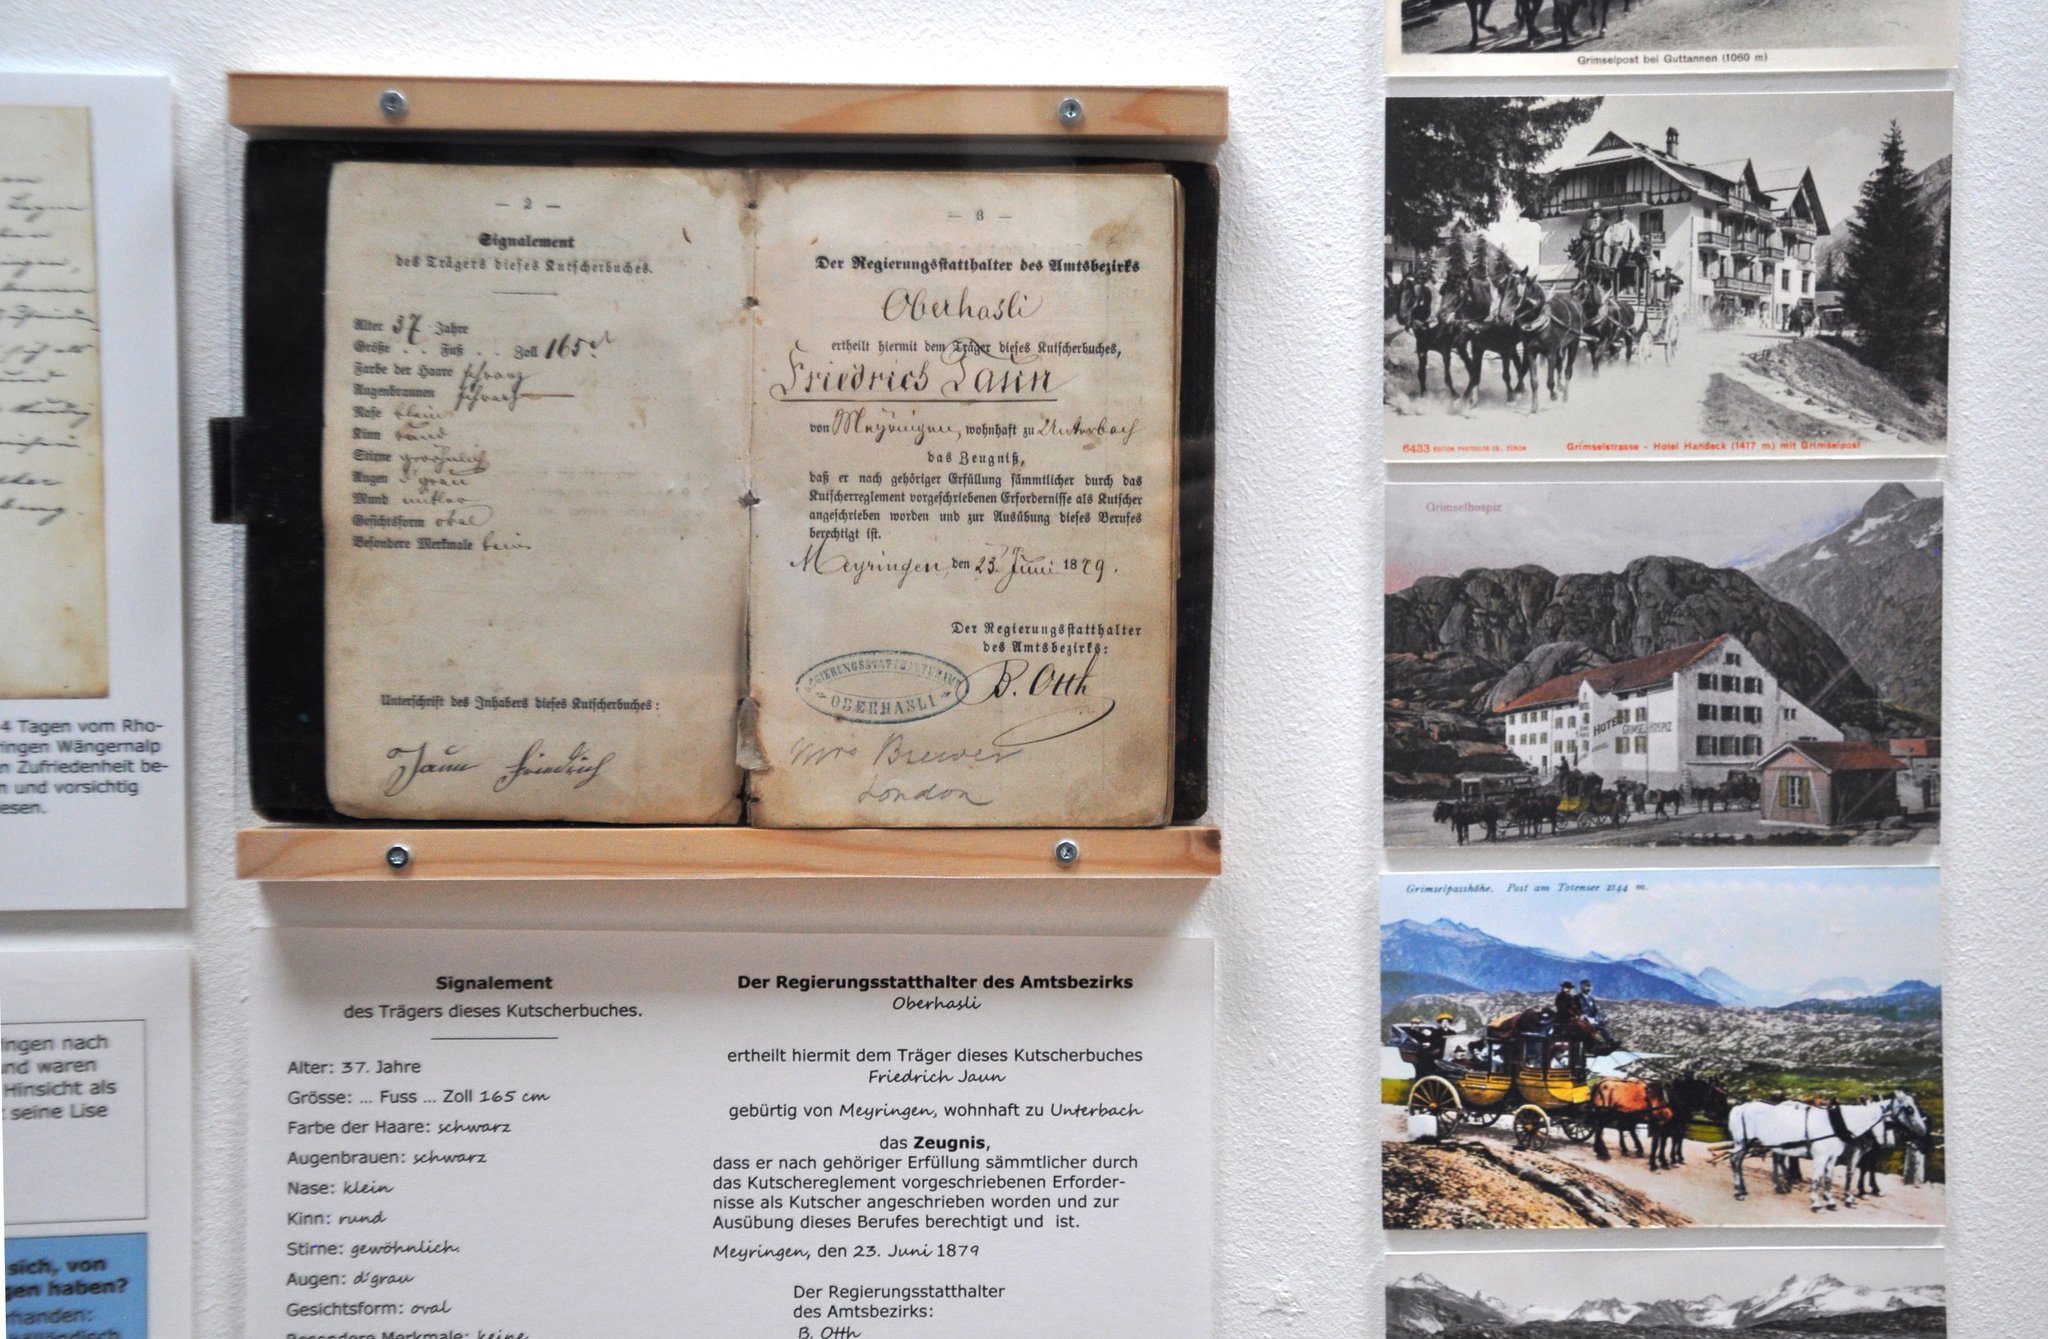 4 Tagen vom Rho-
ringen Wängernalp
n Zufriedenheit be-
n und vorsichtig
esen.
ingen nach
nd waren
Hinsicht als
t seine Lise
sich, von
gen haben?
rhanden:
— 2 —
Signalement
des Trägers dieses Kutscherbuches.
Alter 37 Jahre
Größe . . Fuß . . Zoll 165 c/
Farbe der Haare schwarz
Augenbraunen schwarz
Nase klein
Kinn rund
Stirne gewöhnlich
Augen d'grau
Mund mittler
Gesichtsform oval
Besondere Merkmale keine
Unterschrift des Inhabers dieses Kutscherbuches:
Jaun Friedrich
— 3 —
Der Regierungsstatthalter des Amtsbezirks
Oberhasli
ertheilt hiermit dem Träger dieses Kutscherbuches,
Friedrich Jaun
von Meyringen, wohnhaft zu Unterbach
das Zeugniß,
daß er nach gehöriger Erfüllung sämmtlicher durch das
Kutscherreglement vorgeschriebenen Erfordernisse als Kutscher
angeschrieben worden und zur Ausübung dieses Berufes
berechtigt ist.
Meyringen, den 23. Juni 1879.
Der Regierungsstatthalter
des Amtsbezirks:
B. Otth
REGIERUNGSSTATTHALTERAMT
OBERHASLI
Mrs Brewer
London
Signalement
des Trägers dieses Kutscherbuches.
Alter: 37. Jahre
Grösse: ... Fuss ... Zoll 165 cm
Farbe der Haare: schwarz
Augenbrauen: schwarz
Nase: klein
Kinn: rund
Stirne: gewöhnlich.
Augen: d'grau
Gesichtsform: oval
Besondere Merkmale: keine
Der Regierungsstatthalter des Amtsbezirks
Oberhasli
ertheilt hiermit dem Träger dieses Kutscherbuches
Friedrich Jaun
gebürtig von Meyringen, wohnhaft zu Unterbach
das Zeugnis,
dass er nach gehöriger Erfüllung sämmtlicher durch
das Kutschereglement vorgeschriebenen Erforder-
nisse als Kutscher angeschrieben worden und zur
Ausübung dieses Berufes berechtigt und ist.
Meyringen, den 23. Juni 1879
Der Regierungsstatthalter
des Amtsbezirks:
B. Otth
Grimselpost bei Guttannen (1060 m)
6433 EDITION PHOTOGLOB CO., ZÜRICH
Grimselstrasse - Hotel Handeck (1417 m) mit Grimselpost
Grimselhospiz
HOTEL
GRIMSELHOSPIZ
Grimselpasshöhe. Post am Totensee 2144 m.